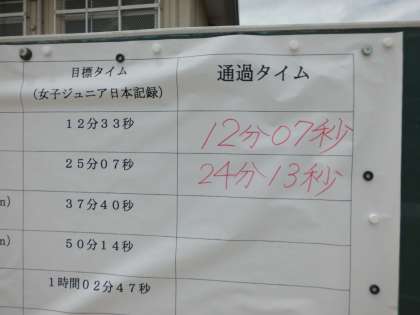 目標タイム 通過タイム
(女子ジュニア日本記録)
12分33秒 12分07秒
25分07秒 24分13秒
m) 37分40秒
m) 50分14秒
1時間02分47秒